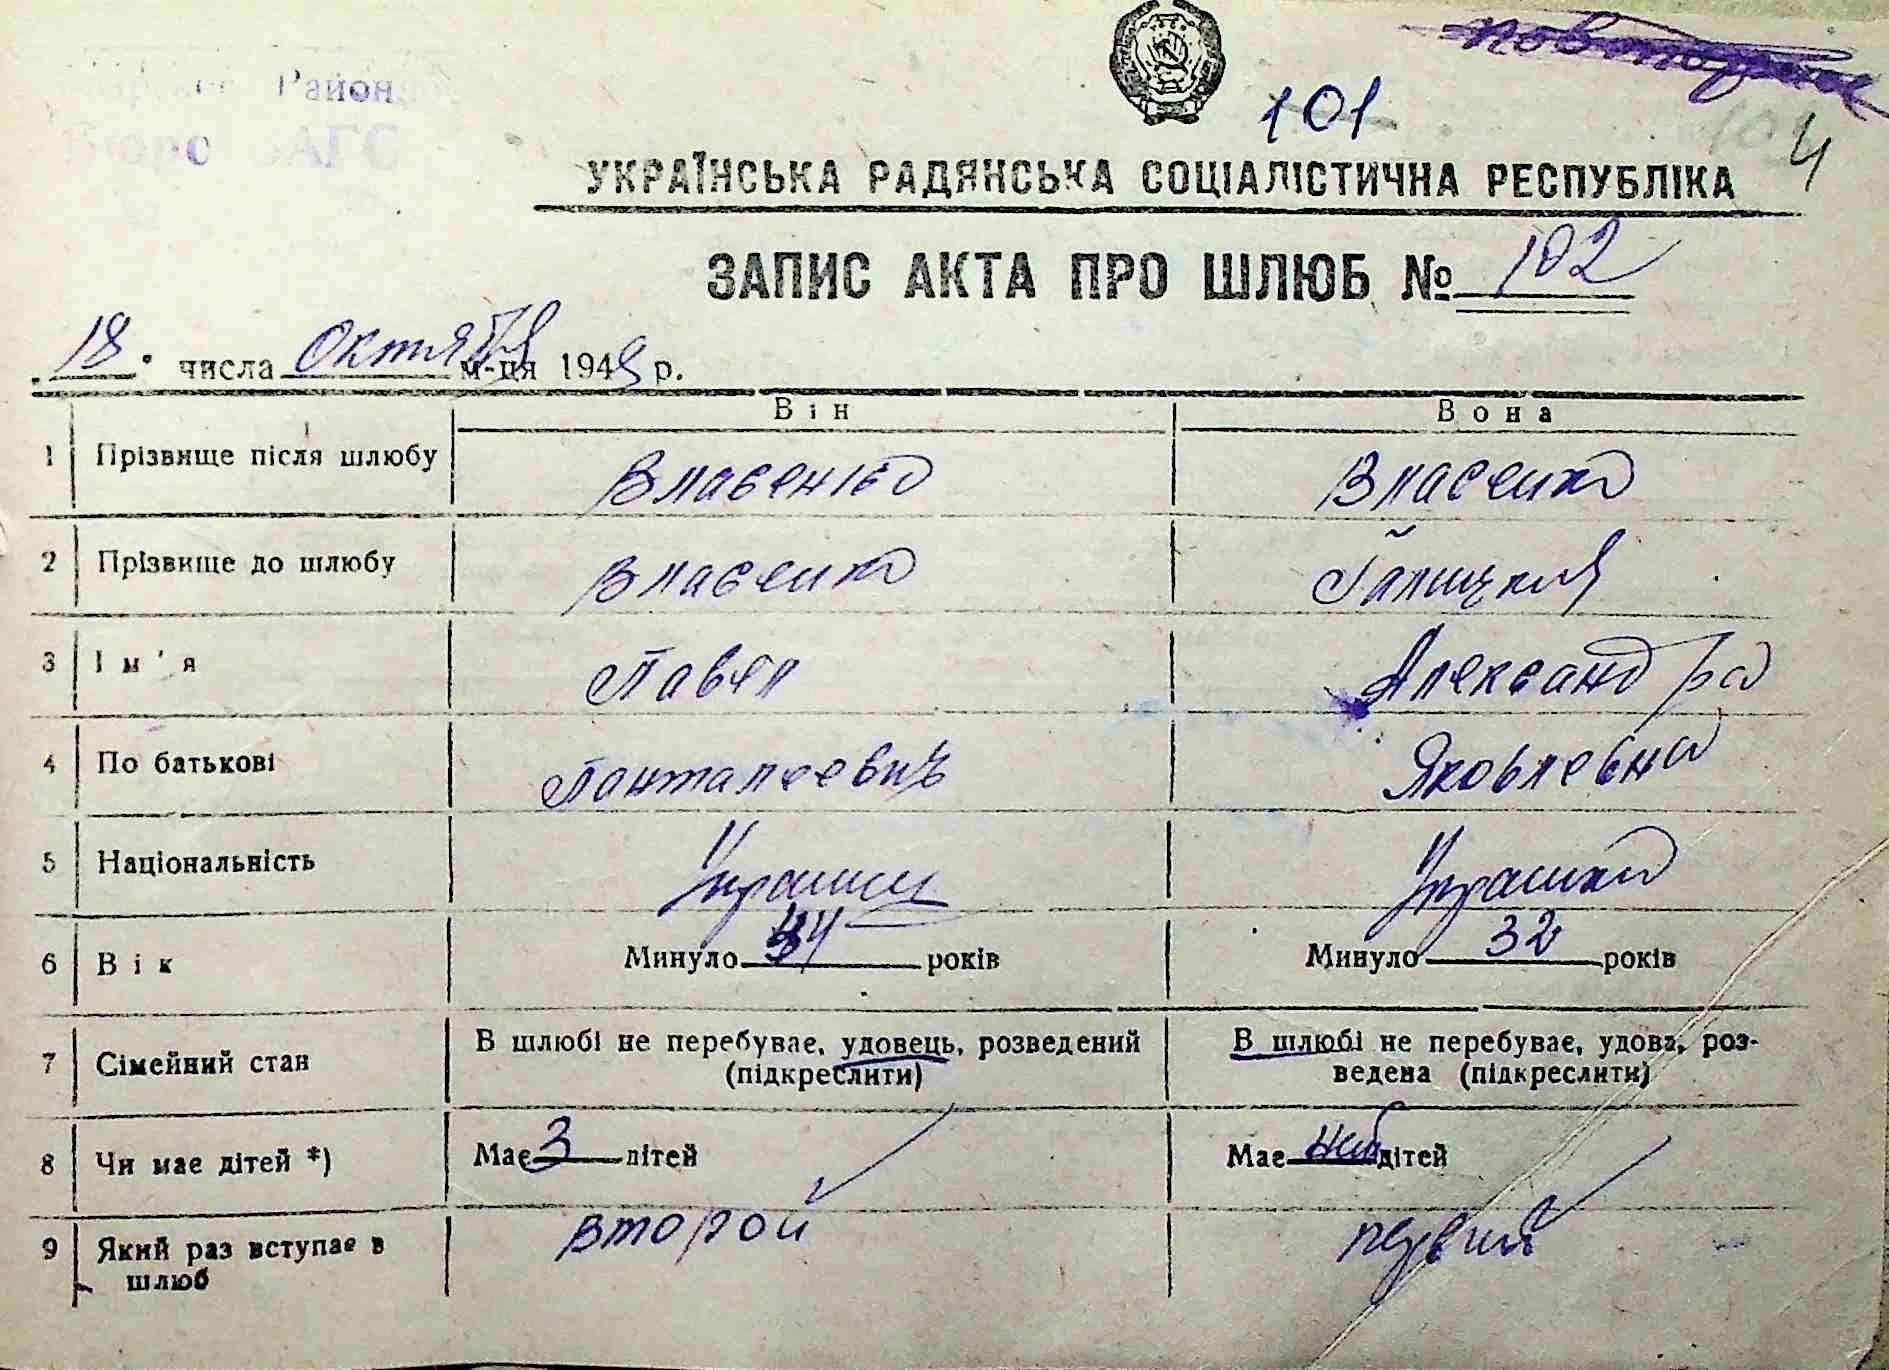 повторные
101
Район
Бюро ЗАГС
4
УКРАЇНСЬКА РАДЯНСЬКА СОЦІАЛІСТИЧНА РЕСПУБЛІКА
ЗАПИС АКТА ПРО ШЛЮБ № 102
18 числа Октября м-ця 1949 р.
Він Вона
1 Прізвище після шлюбу Власенко Власенко
2 Прізвище до шлюбу Власенко Галицкая
3 Ім'я Павел Александра
4 По батькові Панталеевич Яковлевна
5 Національність Украинец Украинка
6 Вік Минуло 44 років Минуло 32 років
7 Сімейний стан В шлюбі не перебуває, удовець, розведений (підкреслити) В шлюбі не перебуває, удова, роз-
ведена (підкреслити)
8 Чи має дітей *) Має 3 дітей Має дітей
9 Який раз вступає в шлюб второй первий